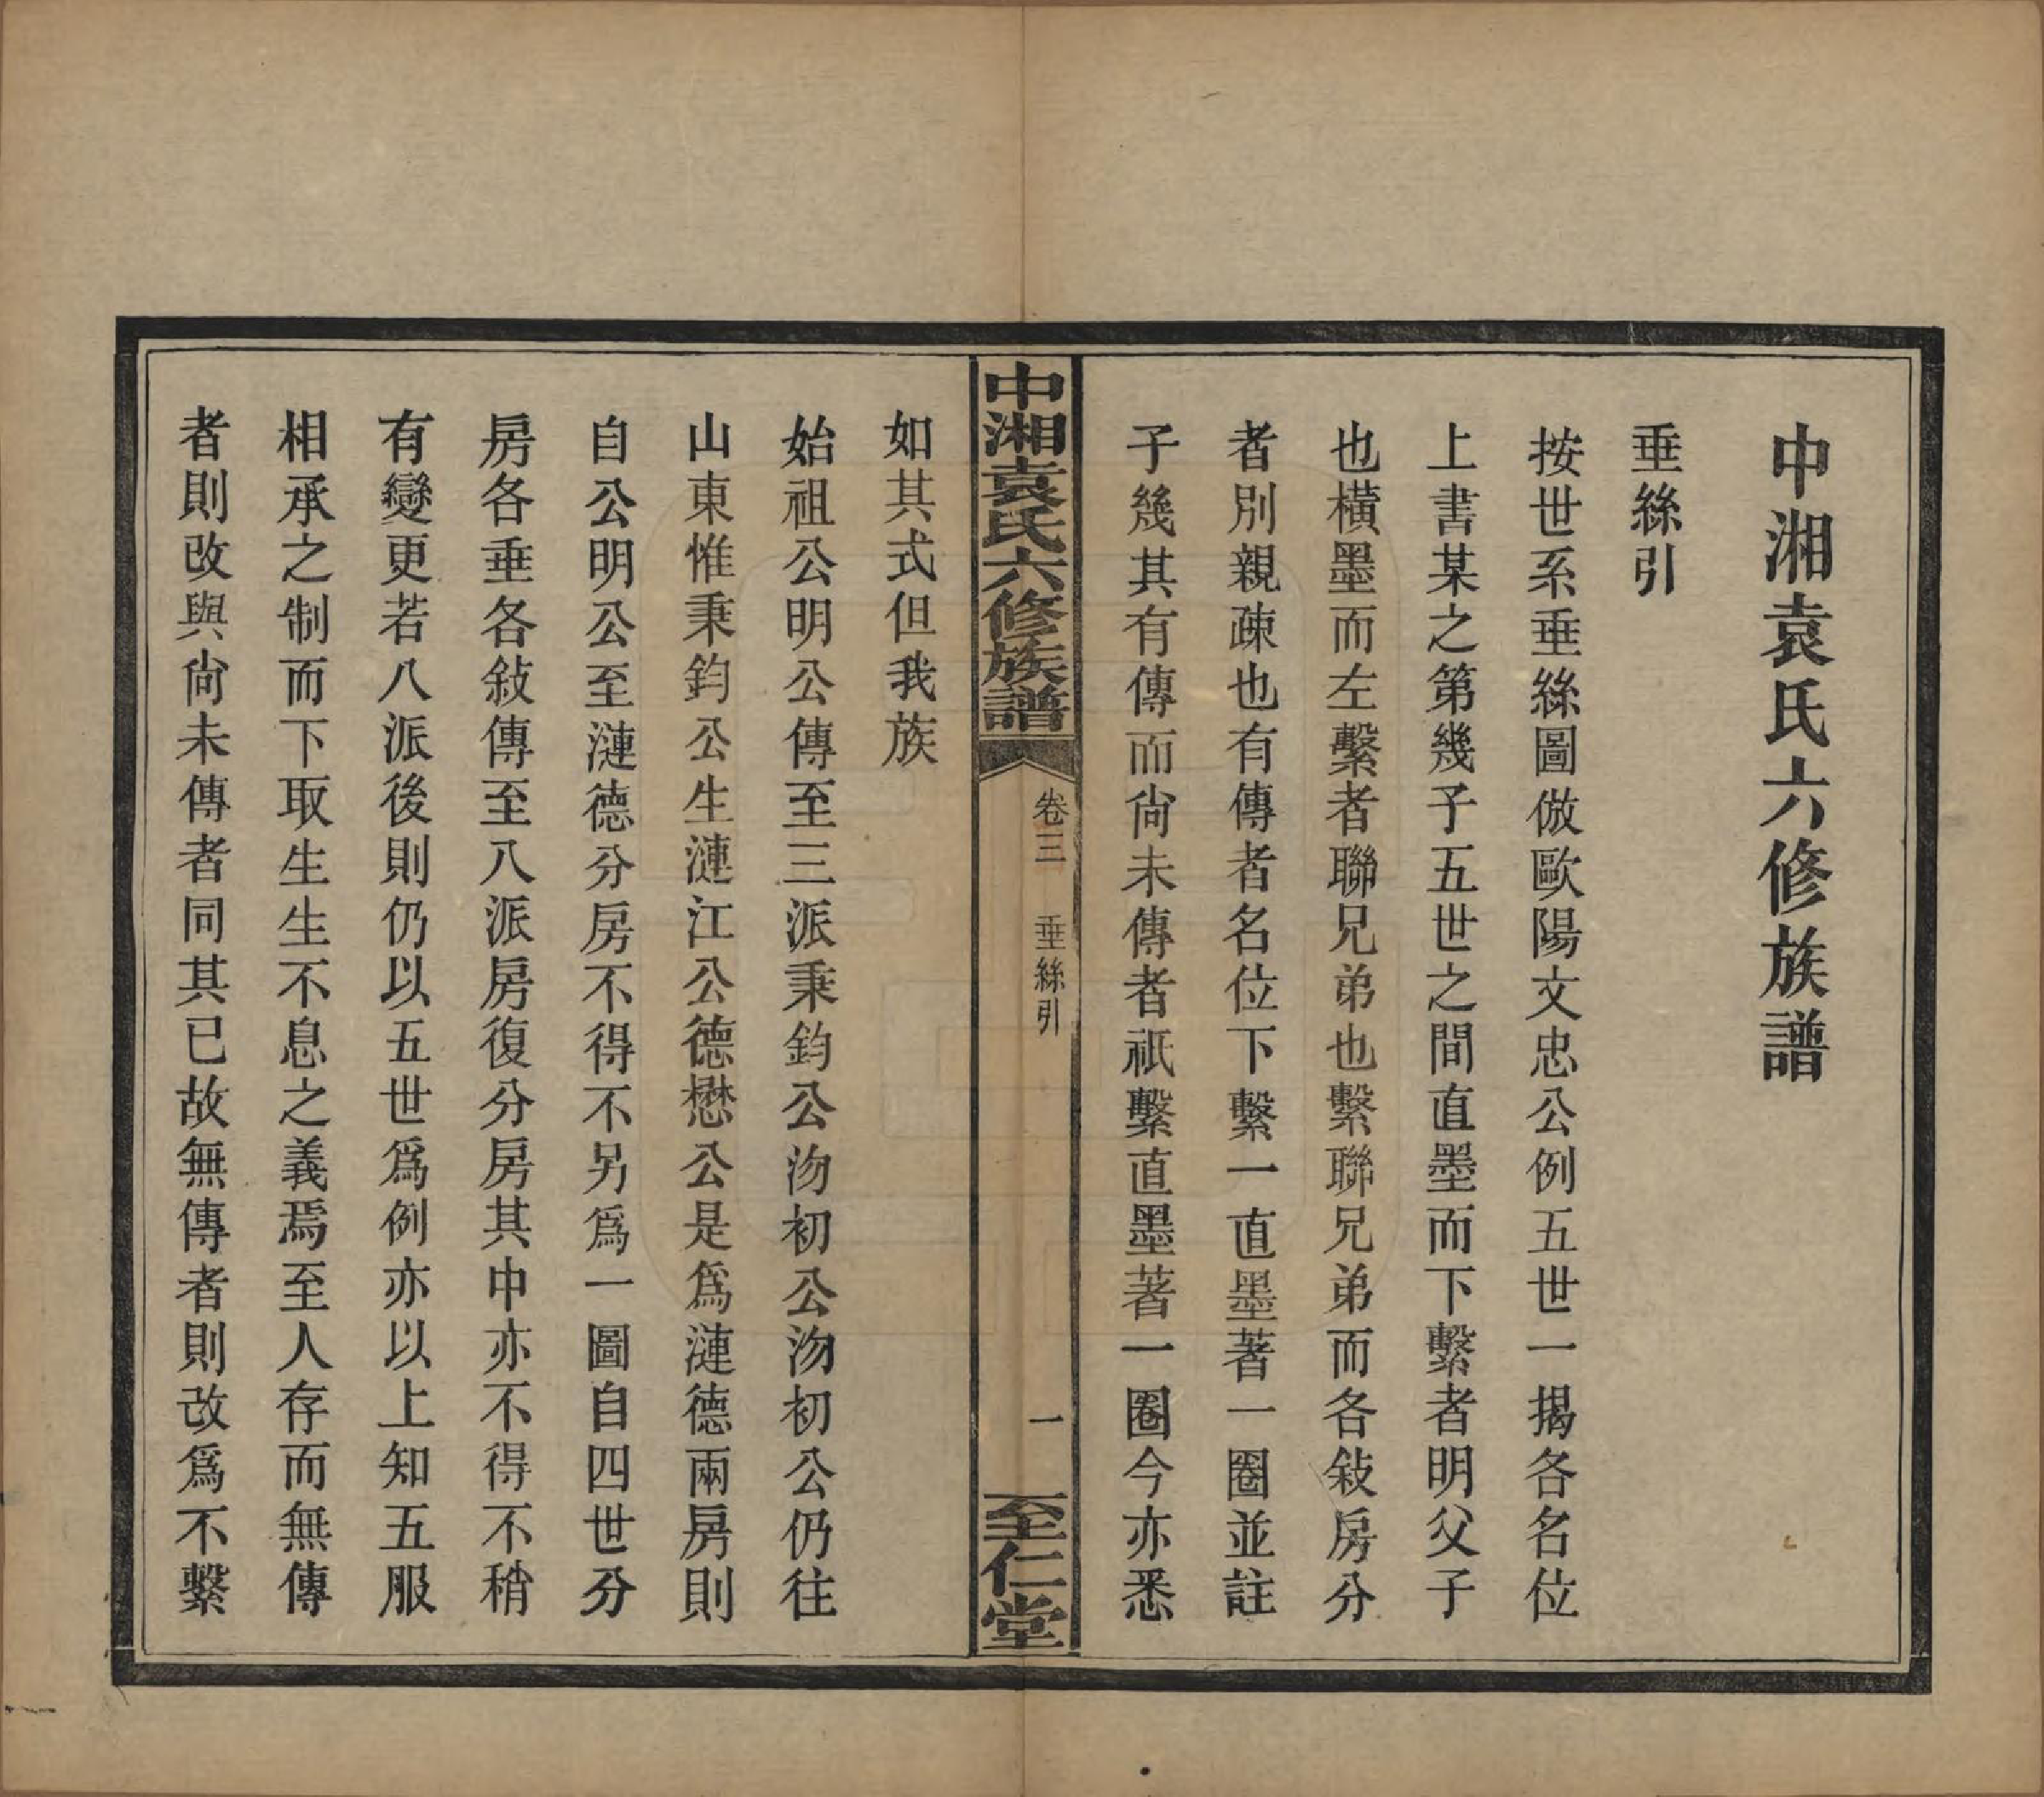 中湘袁氏六修族譜
垂絲引
按世系垂絲圖倣歐陽文忠公例五世一揭各名位
上書某之第幾子五世之間直墨而下繫者明父子
也橫墨而左繫者聯兄弟也繫聯兄弟而各敍房分
者別親疎也有傳者名位下繫一直墨著一圈並註
子幾其有傳而尙未傳者祇繫直墨著一圈今亦悉
中湘袁氏六修族譜
卷三 垂絲引
一
至仁堂
如其式但我族
始祖公明公傳至三派秉鈞公沕初公沕初公仍往
山東惟秉鈞公生漣江公德懋公是爲漣德兩房則
自公明公至漣德分房不得不另爲一圖自四世分
房各垂各敍傳至八派房復分房其中亦不得不稍
有變更若八派後則仍以五世爲例亦以上知五服
相承之制而下取生生不息之義焉至人存而無傳
者則改與尙未傳者同其已故無傳者則改爲不繫